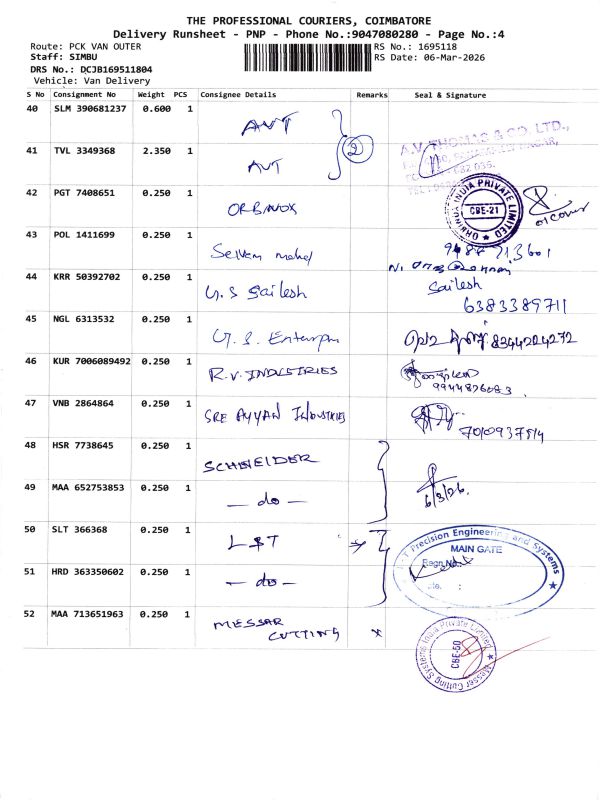 THE PROFESSIONAL COURIERS, COIMBATORE
Delivery Runsheet - PNP - Phone No.:9047080280 - Page No.:4
Route: PCK VAN OUTER
RS No.: 1695118
Staff: SIMBU
RS Date: 06-Mar-2026
DRS No.: DCJB169511804
Vehicle: Van Delivery
S No Consignment No Weight PCS Consignee Details Remarks Seal & Signature
40 SLM 390681237 0.600 1 AVT
2
A.V. THOMAS & CO. LTD.,
41 TVL 3349368 2.350 1 AVT
42 PGT 7408651 0.250 1 ORBINOX
ORBINOX INDIA PRIVATE LIMITED
CBE-21
43 POL 1411699 0.250 1 Selvam
44 KRR 50392702 0.250 1 G.S Sailesh
Sailesh
6383389711
45 NGL 6313532 0.250 1 G.S.
8344204272
46 KUR 7006089492 0.250 1 R.V. INDUSTRIES
47 VNB 2864864 0.250 1 SRE AYYAN INDUSTRIES
48 HSR 7738645 0.250 1 SCHNEIDER
49 MAA 652753853 0.250 1 — do —
6/3/26.
50 SLT 366368 0.250 1 L&T
L&T Precision Engineering and Systems
MAIN GATE
51 HRD 363350602 0.250 1 — do —
52 MAA 713651963 0.250 1 MESSAR
CUTTING
Messer Cutting Systems India Private Limited
CBE-50